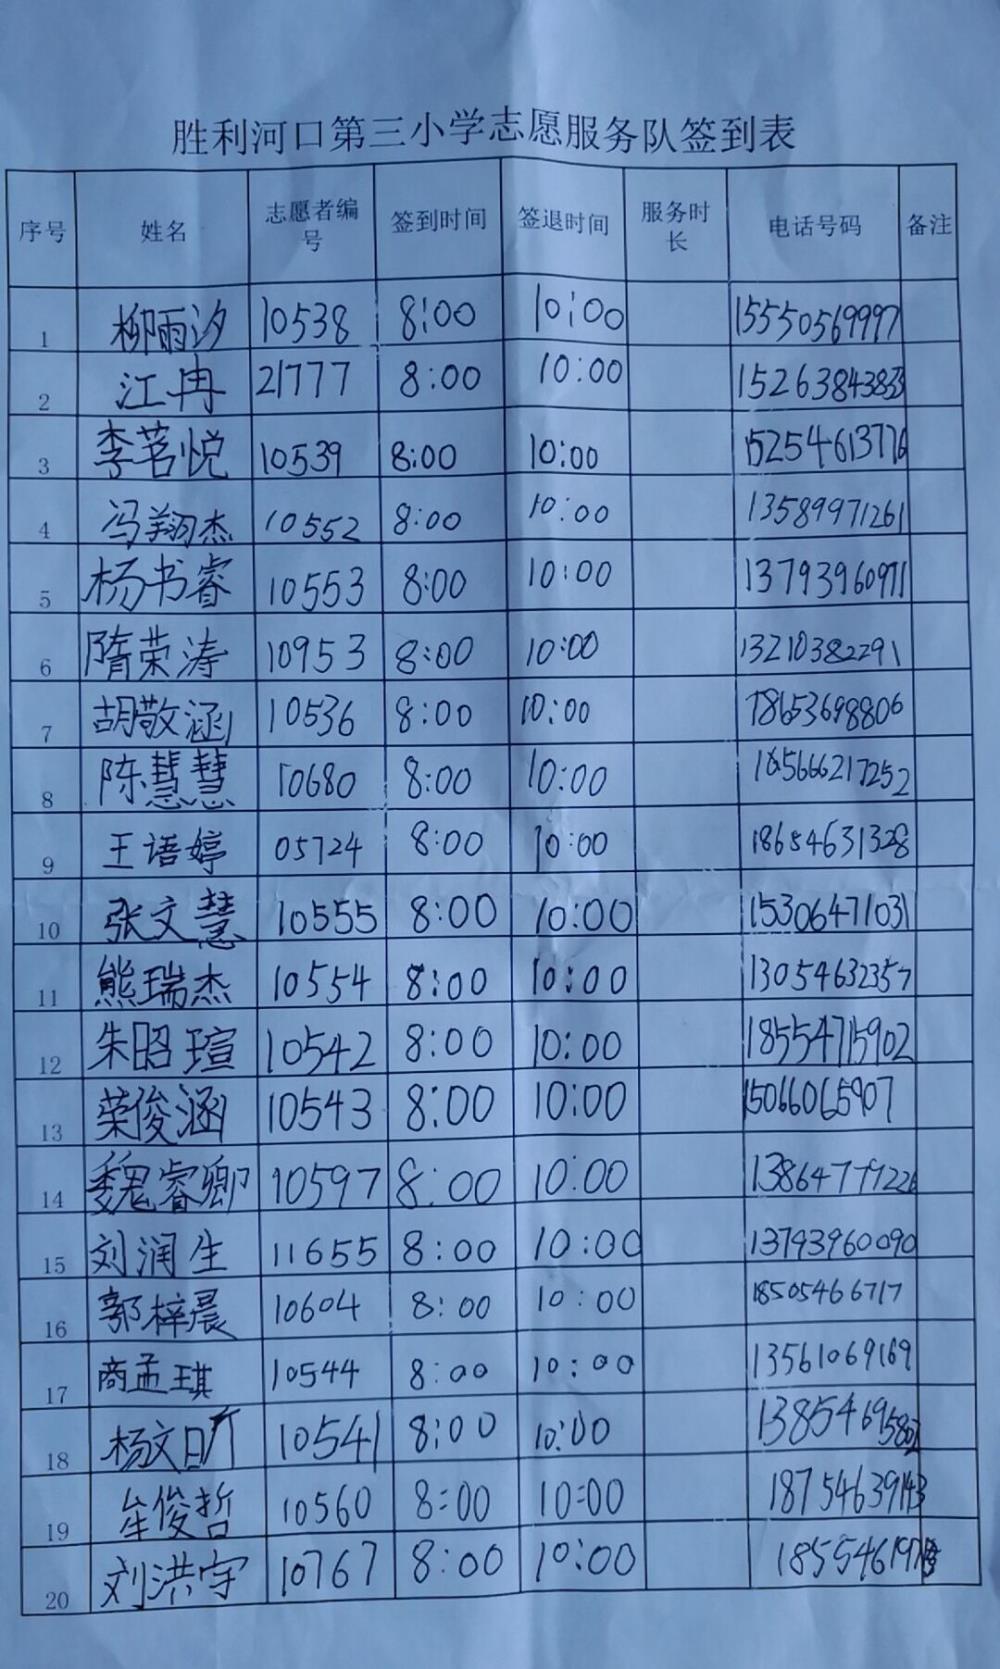 胜利河口第三小学志愿服务队签到表
序号 姓名 志愿者编号 签到时间 签退时间 服务时长 电话号码 备注
1 柳雨汐 10538 8:00 10:00 15550569997
2 江冉 21777 8:00 10:00 15263843833
3 李茗悦 10539 8:00 10:00 15254613776
4 冯翔杰 10552 8:00 10:00 13589971261
5 杨书睿 10553 8:00 10:00 13793960971
6 隋荣涛 10953 8:00 10:00 13210382291
7 胡敬涵 10536 8:00 10:00 18653698806
8 陈慧慧 10680 8:00 10:00
9 王语婷 05724 8:00 10:00 18654631328
10 张文慧 10555 8:00 10:00 15306471031
11 熊瑞杰 10554 8:00 10:00 13054632357
12 朱昭瑄 10542 8:00 10:00 18554715902
13 荣俊涵 10543 8:00 10:00 15066065907
14 魏睿卿 10597 8:00 10:00
15 刘润生 11655 8:00 10:00 13793960090
16 郭梓晨 10604 8:00 10:00 18505466717
17 商孟琪 10544 8:00 10:00 13561069169
18 杨文昕 10541 8:00 10:00
19 牟俊哲 10560 8:00 10:00 18754639143
20 刘洪宇 10767 8:00 10:00